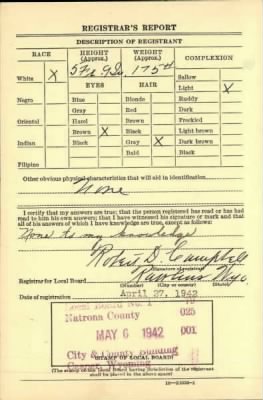 REGISTRAR'S REPORT
DESCRIPTION OF REGISTRANT
RACE HEIGHT (Approx.) WEIGHT (Approx.) COMPLEXION
5 Ft. 9 In. 175
White X Sallow
EYES HAIR Light X
Negro Blue Blonde Ruddy
Gray Red Dark
Oriental Hazel Brown Freckled
Brown X Black Light brown
Indian Black Gray X Dark brown
Bald Black
Filipino
Other obvious physical characteristics that will aid in identification
None
I certify that my answers are true; that the person registered has read or has had
read to him his own answers; that I have witnessed his signature or mark and that
all of his answers of which I have knowledge are true, except as follows:
None to my knowledge
Robert D. Campbell
(Signature of registrar)
Registrar for Local Board Rawlins Wyo.
(Number) (City or county) (State)
Date of registration April 27, 1942
Local Board No. 1 79
Natrona County 025
MAY 6 1942 001
City & County Building
Casper, Wyoming
(STAMP OF LOCAL BOARD)
(The stamp of the Local Board having jurisdiction of the registrant
shall be placed in the above space)